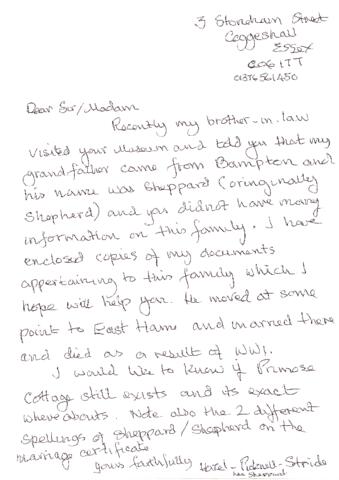 3 Stoneham Street
Coggeshall
Essex
CO6 1TT
01376 561450
Dear Sir/Madam
Recently my brother-in-law
visited your Museum and told you that my
grandfather came from Bampton and
his name was Sheppard (oringinally
Shepherd) and you did not have many
information on this family. I have
enclosed copies of my documents
appertaining to this family which I
hope will help you. He moved at some
point to East Ham and married there
and died as a result of WW1.
I would like to know if Primose
Cottage still exists and its exact
whereabouts. Note also the 2 different
spellings of Sheppard/Shepherd on the
marriage certificate
Yours faithfully Hazel - Picknell - Stride
nee Sheppard